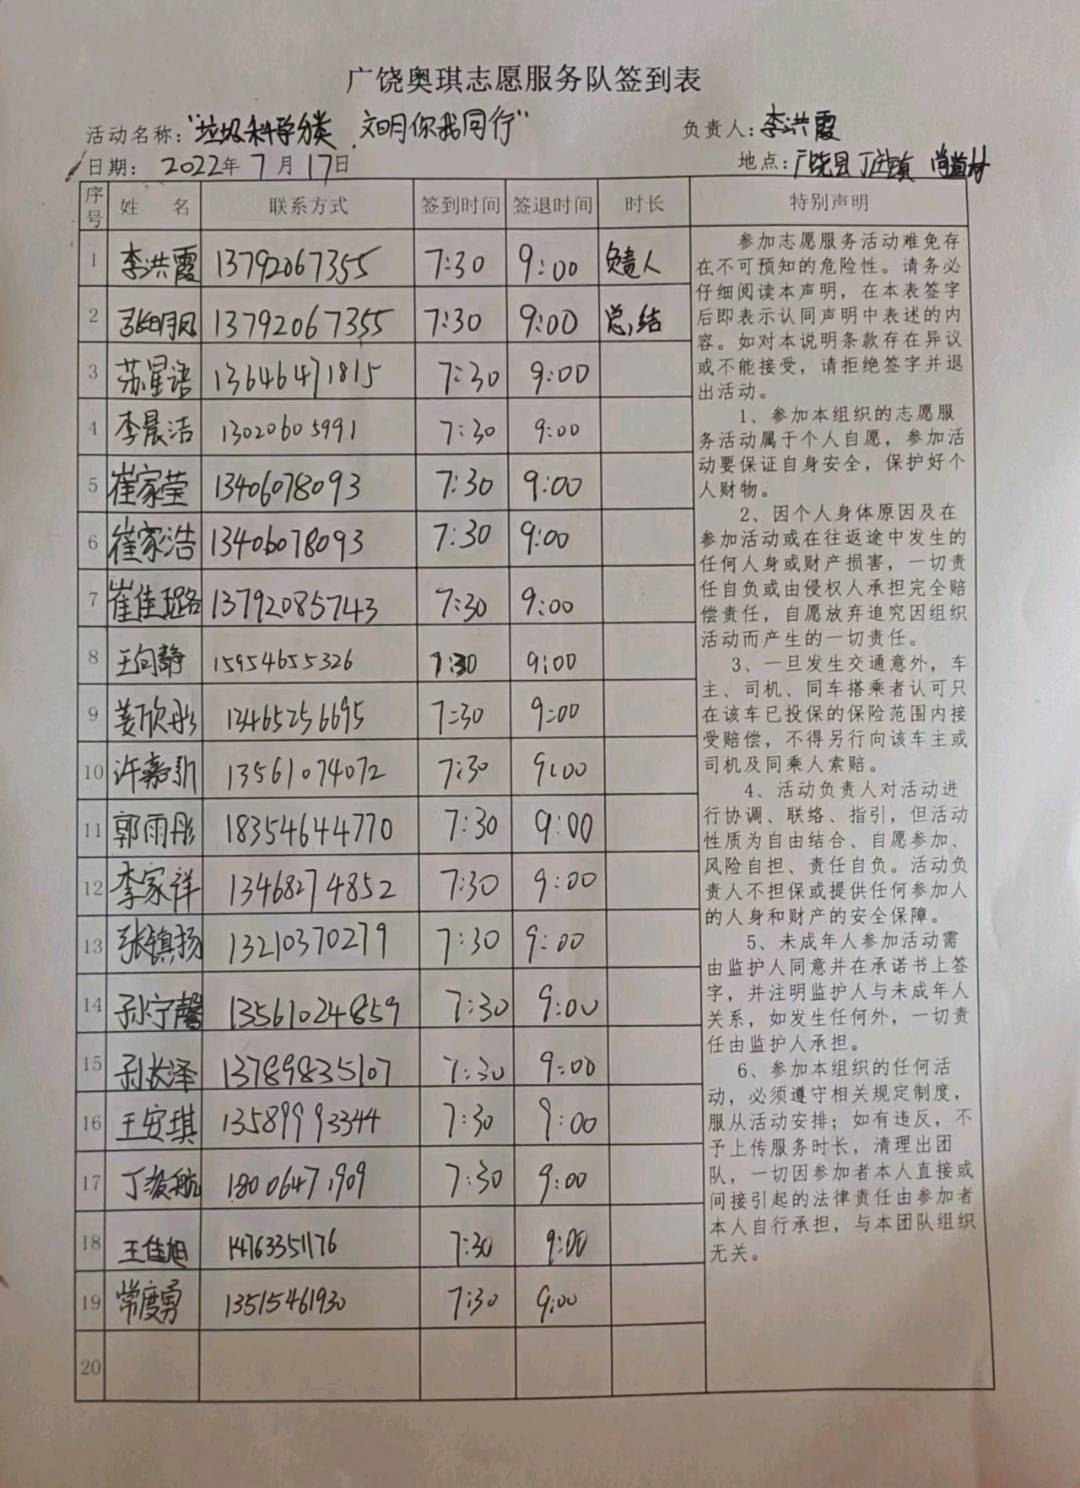 广饶奥琪志愿服务队签到表
活动名称:"垃圾科学分类、文明你我同行" 负责人:李洪霞
日期: 2022年7月17日 地点:广饶县丁庄镇 尚道村
序号 姓 名 联系方式 签到时间 签退时间 时长 特别声明
1 李洪霞 13792067355 7:30 9:00 负责人
2 张明凤 13792067355 7:30 9:00 总结
3 苏星语 13646471815 7:30 9:00
4 李晨洁 13020605991 7:30 9:00
5 崔家莹 13406078093 7:30 9:00
6 崔家浩 13406078093 7:30 9:00
7 崔佳璐 13792085743 7:30 9:00
8 王向静 15954655326 7:30 9:00
9 姜欣彤 13465256695 7:30 9:00
10 许嘉 13561074072 7:30 9:00
11 郭雨彤 18354644770 7:30 9:00
12 李家祥 13468274852 7:30 9:00
13 张镇扬 13210370279 7:30 9:00
14 孙宁馨 13561024859 7:30 9:00
15 孙长泽 13789835107 7:30 9:00
16 王安琪 13589993344 7:30 9:00
17 丁浚航 18006471909 7:30 9:00
18 王佳旭 14763351176 7:30 9:00
19 常度勇 13515461930 7:30 9:00
20
参加志愿服务活动难免存
在不可预知的危险性。请务必
仔细阅读本声明，在本表签字
后即表示认同声明中表述的内
容。如对本说明条款存在异议
或不能接受，请拒绝签字并退
出活动。
1、参加本组织的志愿服
务活动属于个人自愿，参加活
动要保证自身安全，保护好个
人财物。
2、因个人身体原因及在
参加活动或在往返途中发生的
任何人身或财产损害，一切责
任自负或由侵权人承担完全赔
偿责任，自愿放弃追究因组织
活动而产生的一切责任。
3、一旦发生交通意外，车
主、司机、同车搭乘者认可只
在该车已投保的保险范围内接
受赔偿，不得另行向该车主或
司机及同乘人索赔。
4、活动负责人对活动进
行协调、联络、指引，但活动
性质为自由结合、自愿参加、
风险自担、责任自负。活动负
责人不担保或提供任何参加人
的人身和财产的安全保障。
5、未成年人参加活动需
由监护人同意并在承诺书上签
字，并注明监护人与未成年人
关系，如发生任何外，一切责
任由监护人承担。
6、参加本组织的任何活
动，必须遵守相关规定制度，
服从活动安排；如有违反，不
予上传服务时长，清理出团
队，一切因参加者本人直接或
间接引起的法律责任由参加者
本人自行承担，与本团队组织
无关。